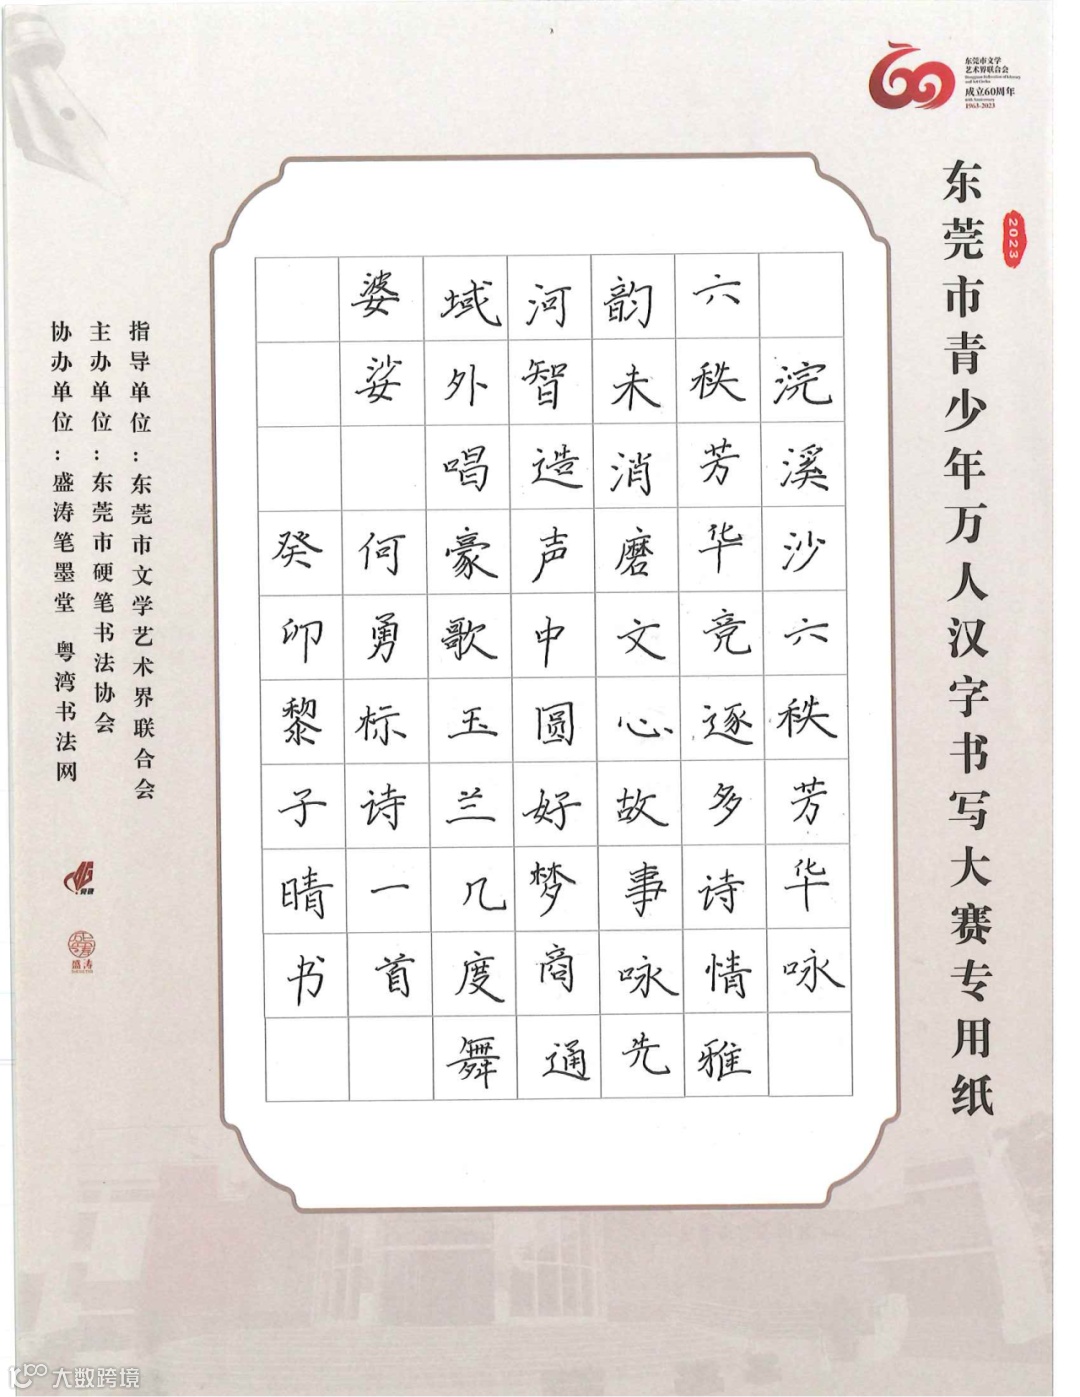 东莞市文学
艺术界联合会
成立60周年
1963-2023
2023
东莞市青少年万人汉字书写大赛专用纸
浣溪沙六秩芳华咏
六秩芳华竞逐多诗情雅
韵未消磨文心故事咏先
河智造声中圆好梦商通
域外唱豪歌玉兰几度舞
婆娑何勇标诗一首
癸卯黎子晴书
指导单位：东莞市文学艺术界联合会
主办单位：东莞市硬笔书法协会
协办单位：盛涛笔墨堂 粤湾书法网
盛涛
大数跨境